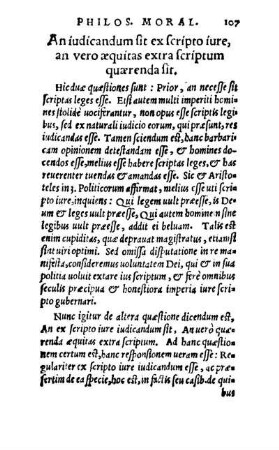 PHILOS. MORAL. 107
An iudicandum sit ex scripto iure,
an vero æquitas extra scriptum
quærenda sit.
Hic duæ quæstiones sunt: Prior, an necesse sit
scriptas leges esse. Etsi autem multi imperiti homi-
nes stolidè vociferantur, non opus esse scriptis legi-
bus, sed ex naturali iudicio eorum, qui præsunt, res
iudicandas esse. Tamen sciendum est, hanc barbari-
cam opinionem detestandam esse, & homines do-
cendos esse, melius esse habere scriptas leges, & has
reuerenter tuendas & amandas esse. Sic & Aristo-
teles in 3. Politicorum affirmat, melius esse uti scrip-
to iure, inquiens: Qui legem uult præesse, is De-
um & leges uult præesse, Qui autem homine sine
legibus uult præesse, addit ei beluam. Talis est
enim cupiditas, quæ deprauat magistratus, etiamsi
sint uiri optimi. Sed omissa disputatione in re ma-
nifesta, consideremus uoluntatem Dei, qui & in sua
politia uoluit extare ius scriptum, & ferè omnibus
seculis præcipua & honestiora imperia iure scri-
pto gubernari.
Nunc igitur de altera quæstione dicendum est,
An ex scripto iure iudicandum sit, An uerò quæ-
renda æquitas extra scriptum. Ac ad hanc quæstio-
nem certum est, hanc responsionem ueram esse: Re-
gulariter ex scripto iure iudicandum esse, ac præ-
sertim de ea specie, hoc est, in factis seu casib. de qui
bus